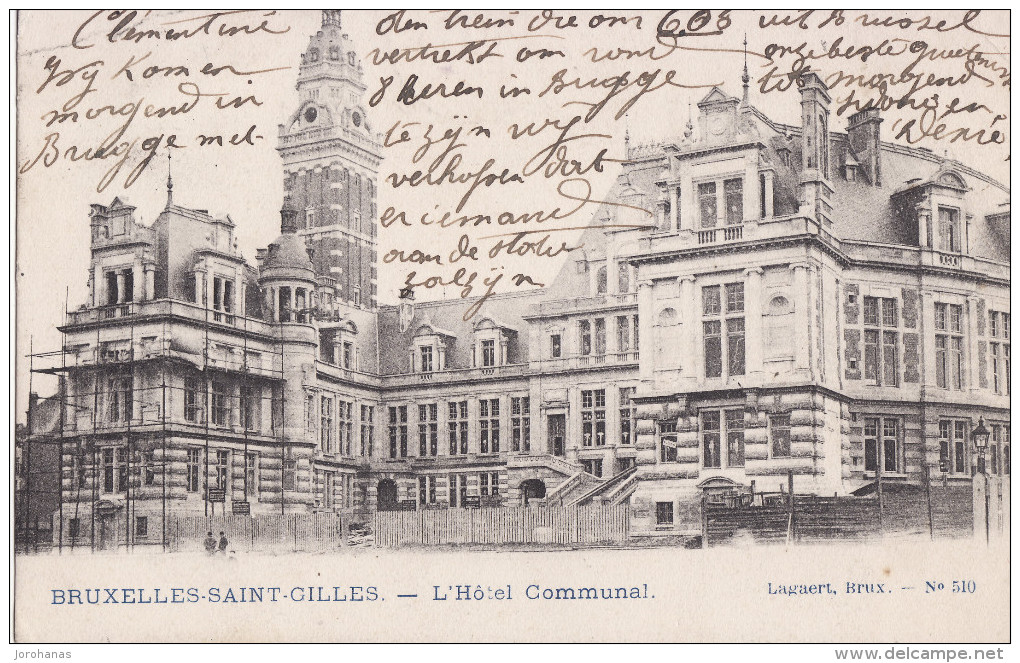 Clementine
Wy Komen
morgend in
Brugge met
den trein die om 6.03 uit Brussel
vertrekt om rond
8 heren in Brugge
te zijn wy
verhopen dat
er iemand
aan de statie
zal zijn
onze beste groetenis
tot morgend
Adonis en
Denie
BRUXELLES-SAINT-GILLES. — L'Hôtel Communal.
Lagaert, Brux. — No 510
Jorohanas
www.delcampe.net